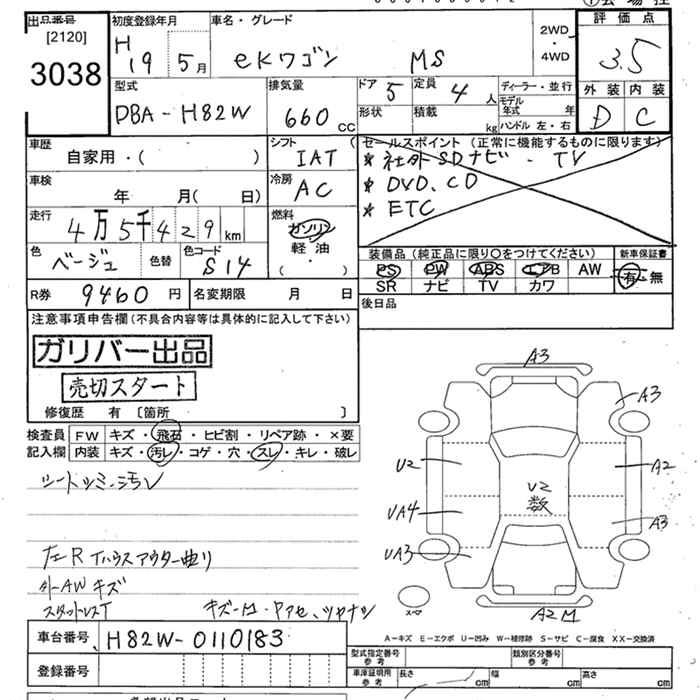 出品番号
[2120]
3038
初度登録年月
H 19 5月
車名・グレード
eKワゴン MS
2WD
・
4WD
評価点
3.5
外装 内装
D C
型式
DBA-H82W
排気量
660 CC
ドア 5
定員 4 人
形状
積載 kg
ディーラー・並行
モデル年式 年
ハンドル 左・右
車歴
自家用・( )
シフト
IAT
車検
年 月( 日)
冷房
AC
走行
4万5千429km
燃料
ガソリン
軽・油
( )
色
ベージュ
色替
色コード
S14
R券 9460円
名変期限 月 日
セールスポイント(正常に機能するものに限ります)
* 社外SDナビ・TV
* DVD、CD
* ETC
装備品(純正品に限り○をつけてください)
新車保証書
PS PW ABS エアB AW
有・無
SR ナビ TV カワ
後日品
注意事項申告欄(不具合内容等は具体的に記入して下さい)
ガリバー出品
売切スタート
修復歴 有 [箇所 ]
検査員
記入欄
FW キズ・飛石・ヒビ割・リペア跡・×要
内装 キズ・汚レ・コゲ・穴・スレ・キレ・破レ
シートシミ、汚レ
左Rタイハウスアウター曲リ
外AWキズ
スタットレスT
キズ・凹・Pアセ、ツヤナシ
A3
A3
U2
A2
U2
数
UA4
A3
UA3
スペア
A2 M
A-キズ E-エクボ U-凹み W-補修跡 S-サビ C-腐食 XX-交換済
車台番号 H82W-0110183
登録番号
型式指定番号
参考
類別区分番号
参考
車庫証明
参考
長さ cm
幅 cm
高さ cm